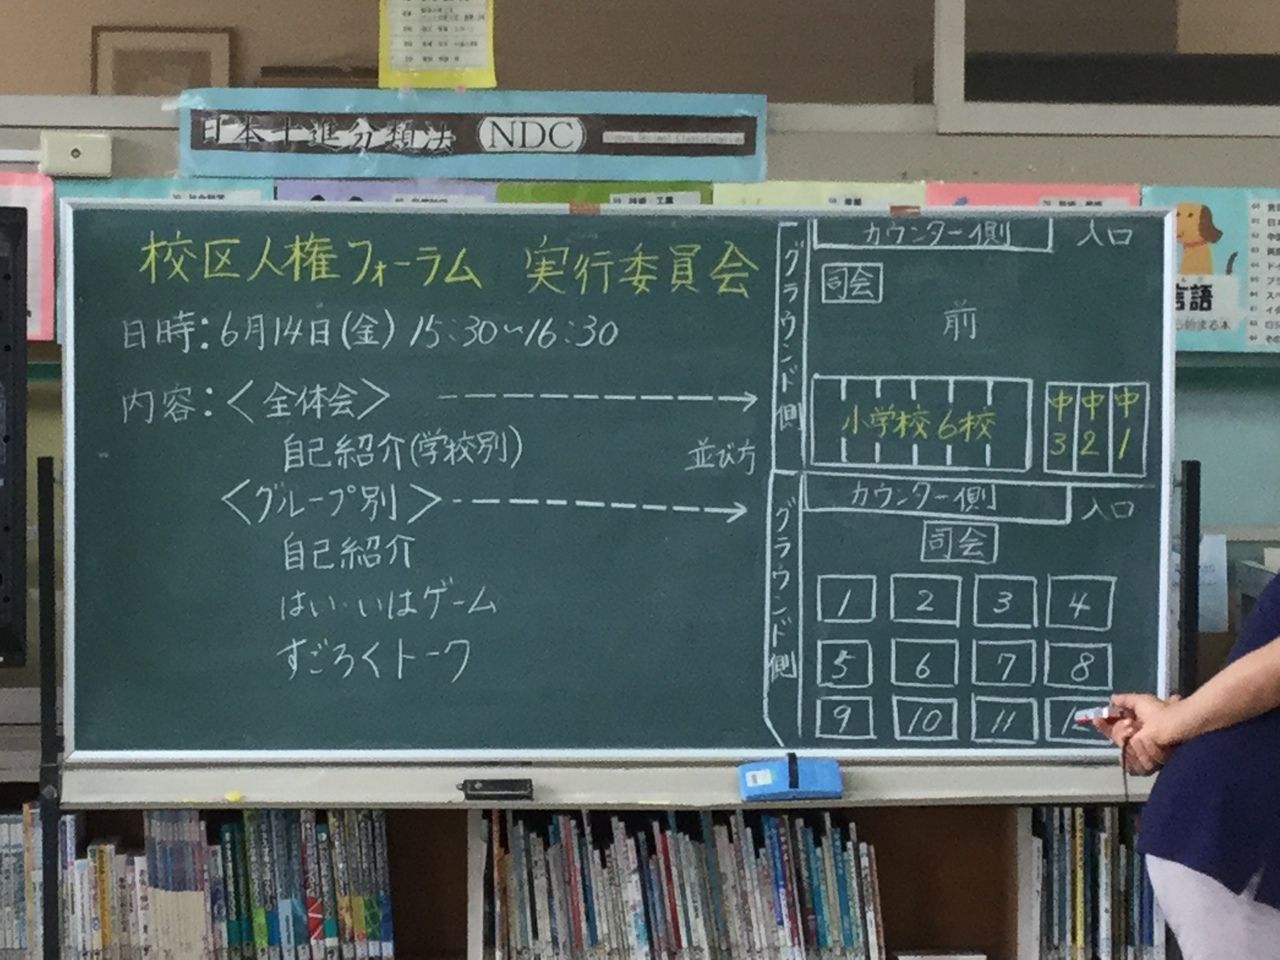 日本十進分類法 NDC
校区人権フォーラム 実行委員会
日時：6月14日(金) 15:30～16:30
内容：〈全体会〉
自己紹介(学校別)
並び方
〈グループ別〉
自己紹介
はい・いはゲーム
すごろくトーク
グラウンド側
カウンター側
入口
司会
前
小学校6校
中3
中2
中1
グラウンド側
カウンター側
入口
司会
1 2 3 4
5 6 7 8
9 10 11
言語